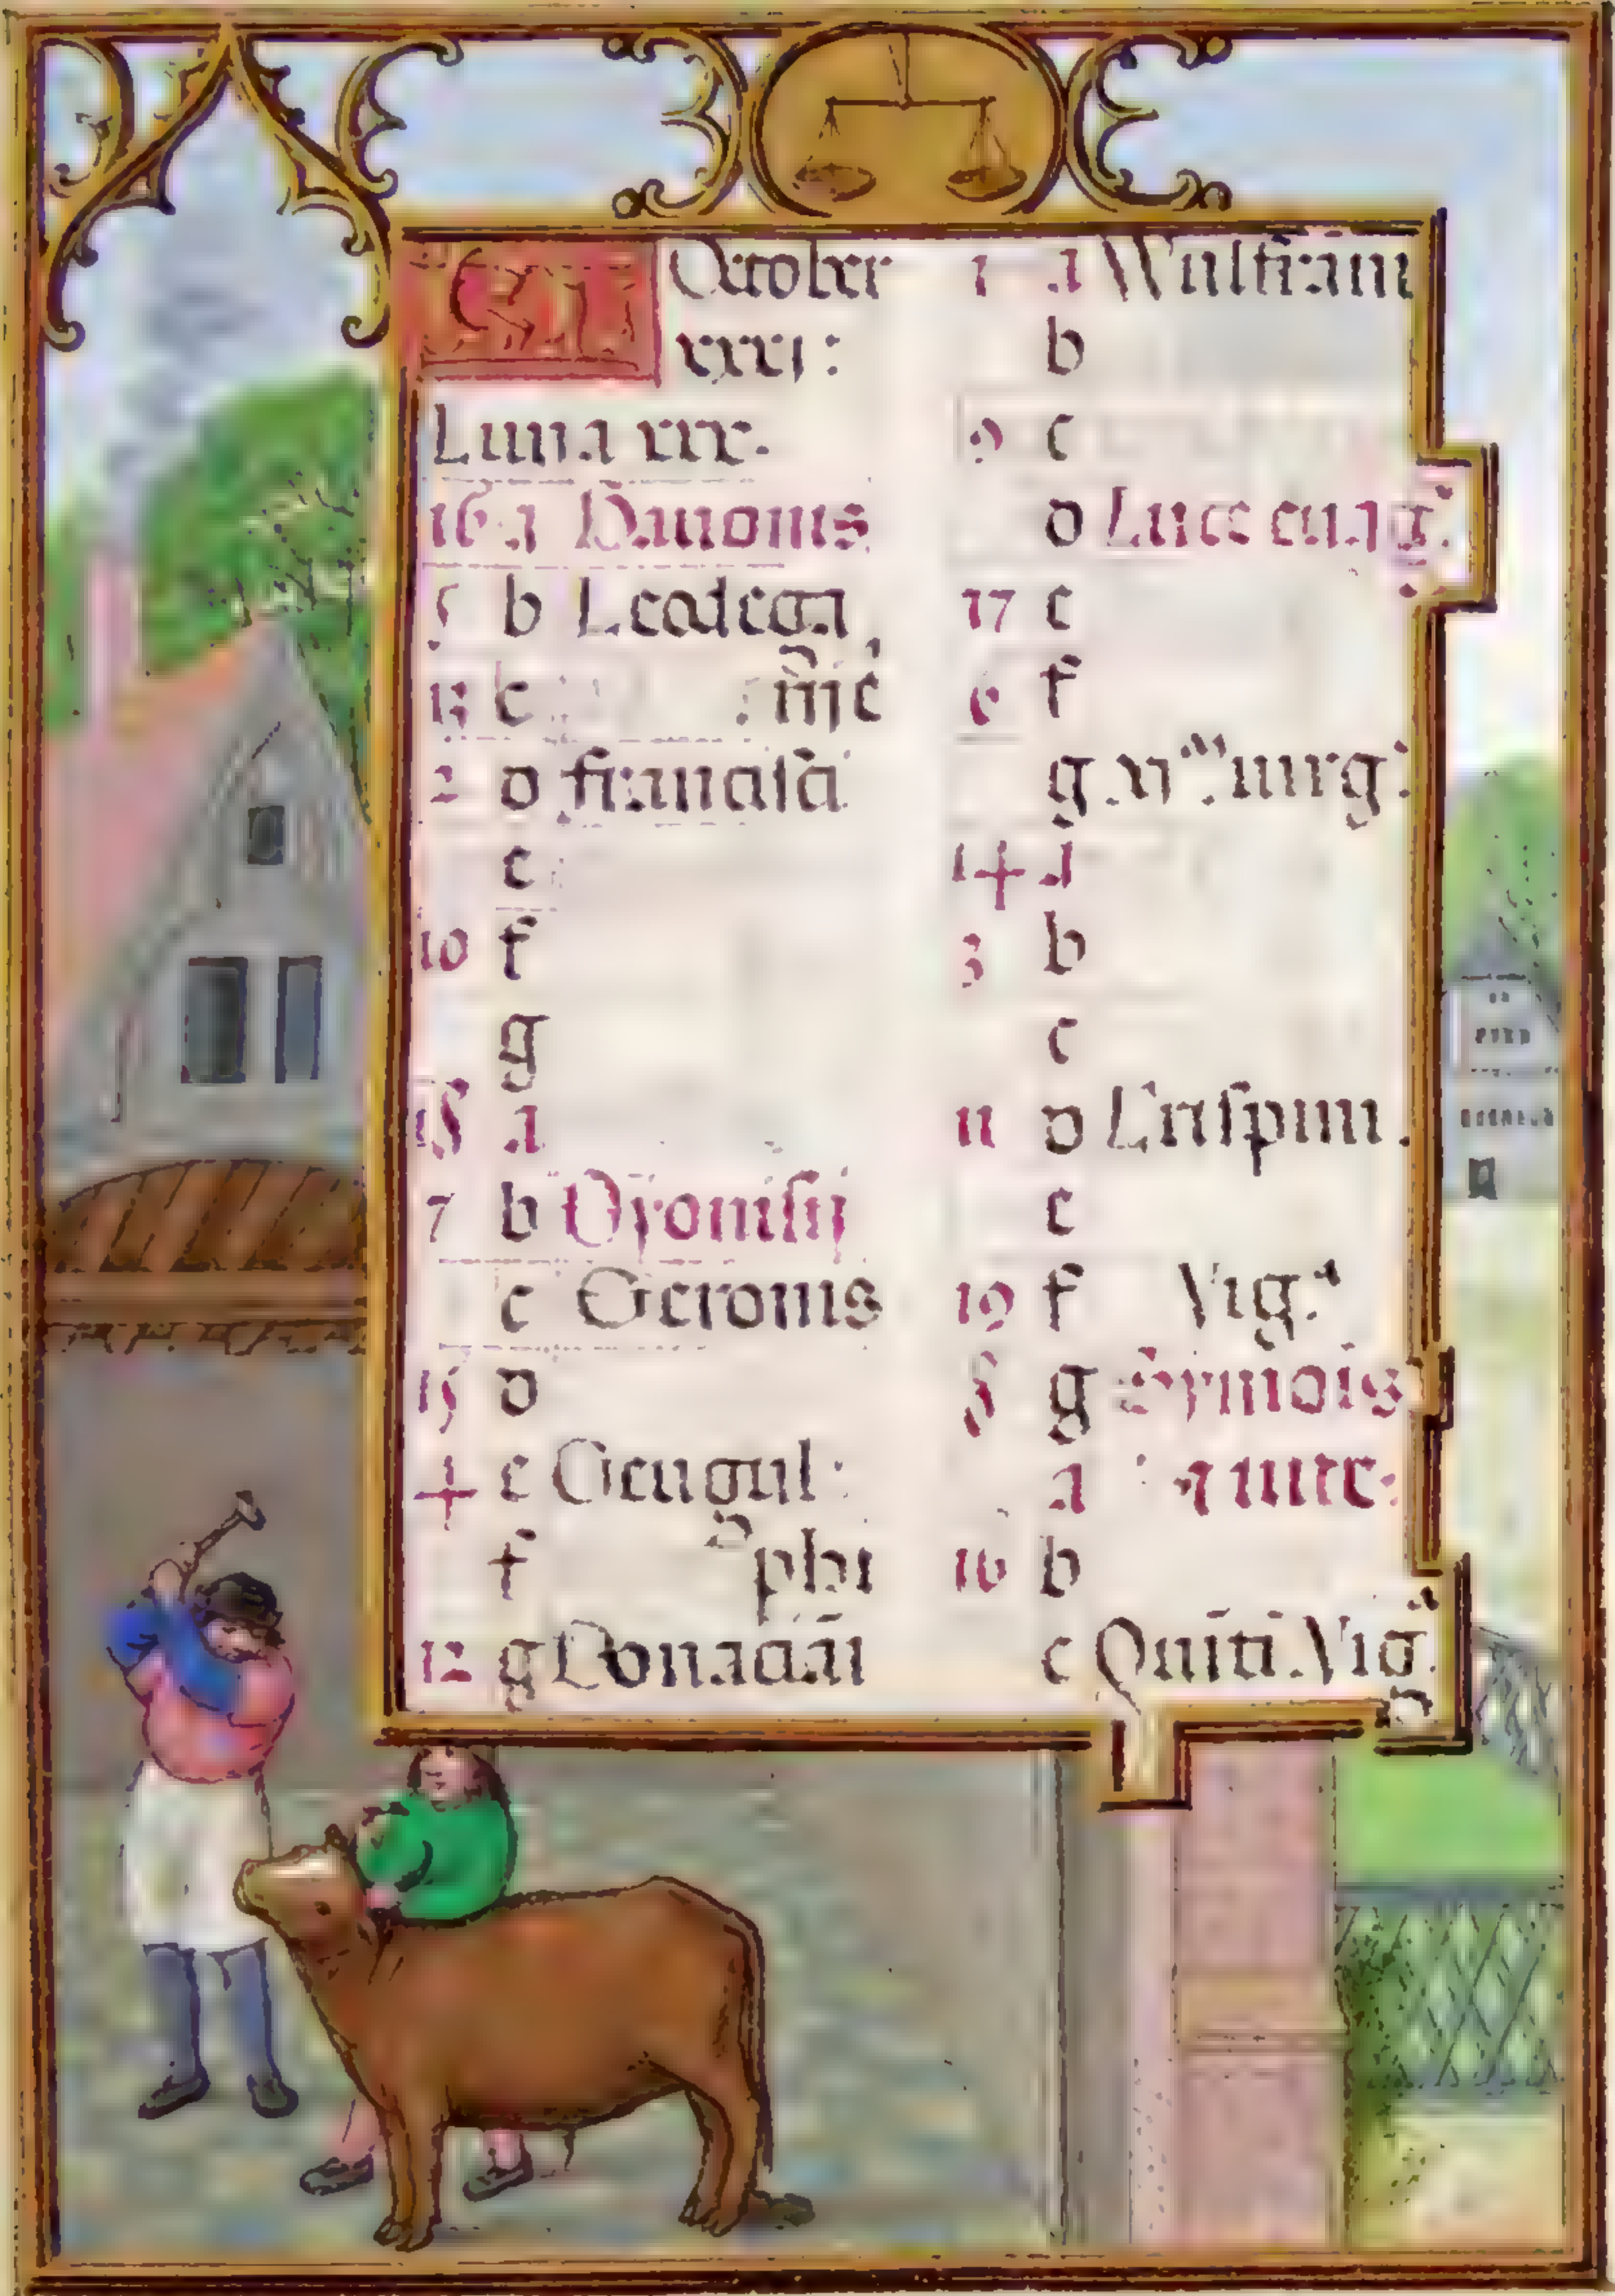 KL October
xxxi:
Luna xxx.
16 a Bauonis
5 b Leodega
13 c rij ñiẽ
2 d francisci
e
10 f
g
18 a
7 b Dyonisij
c Gereonis
15 d
4 e Geugul:
f phi
12 g Donaciãi
1 a Wulfram
b
9 c
d Luce euãg.
17 e
6 f
g virg:
14 a
3 b
c
11 d Crispini.
e
19 f Vig.ª
8 g Symõis
a Iude.
16 b
c Quiti. Vig.